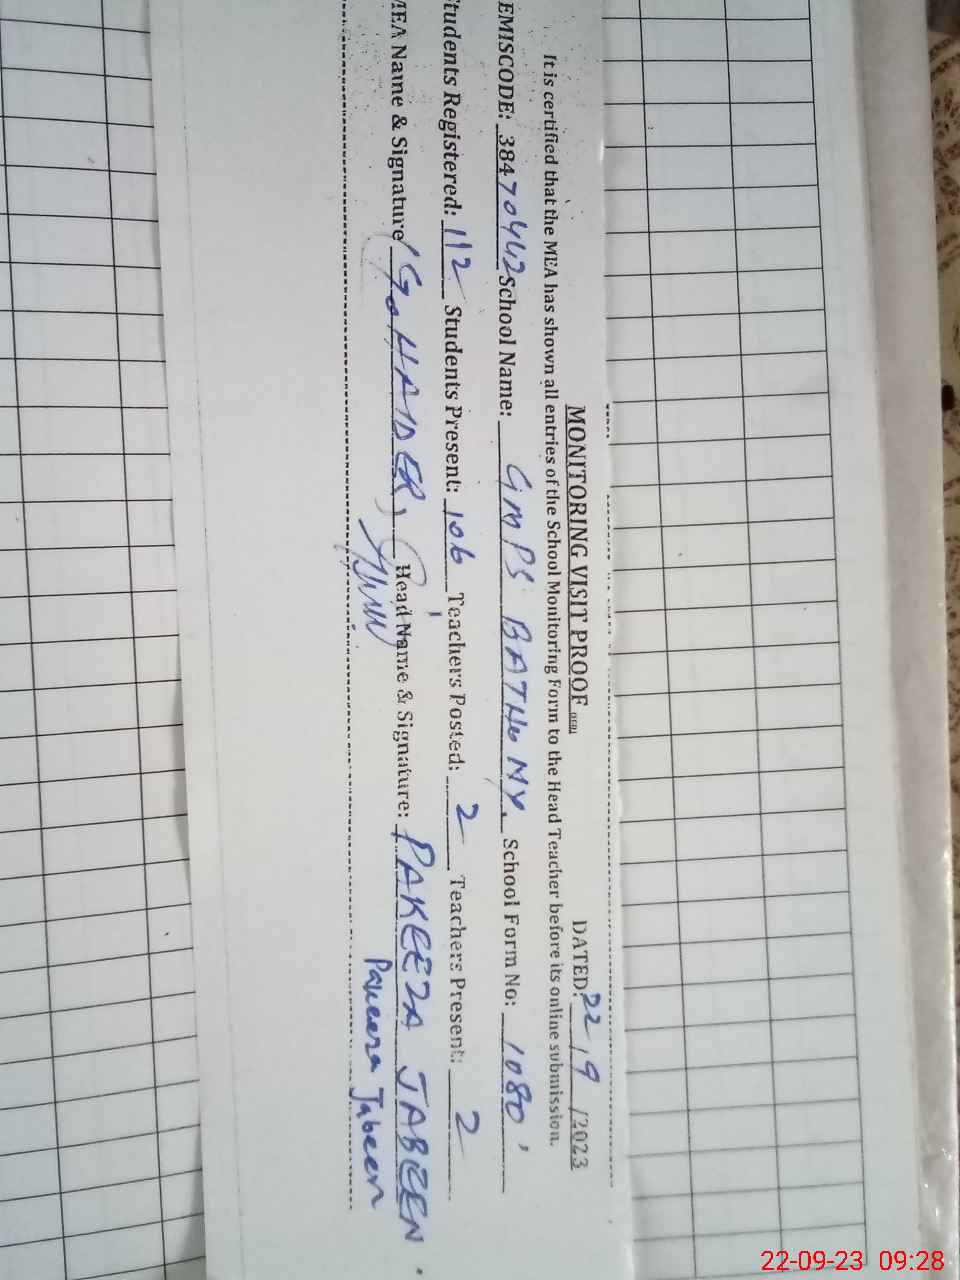 MONITORING VISIT PROOF DATED: 22/9/2023
It is certified that the MEA has shown all entries of the School Monitoring Form to the Head Teacher before its online submission.
EMISCODE: 38470442 School Name: GMPS BATHOMY. School Form No: 1080
Students Registered: 112 Students Present: 106 Teachers Posted: 2 Teachers Present: 2
MEA Name & Signature (G. HAIDER) Head Name & Signature: PAKEEZA JABEEN
Pakeeza Jabeen
22-09-23 09:28